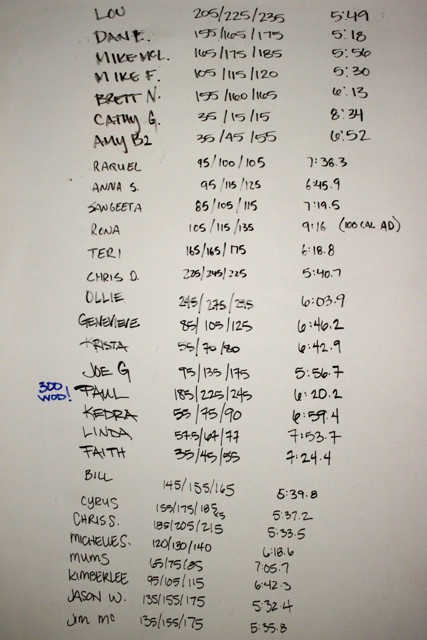 LOU 205/225/235 5:49
DAN E. 155/165/175 5:18
MIKE MCL. 165/175/185 5:56
MIKE F. 105/115/120 5:30
BRETT N. 155/160/165 6:13
CATHY G. 35/15/15 8:34
AMY B2 35/45/55 6:52
RAQUEL 95/100/105 7:38.3
ANNA S. 95/115/125 6:45.9
SANGEETA 85/105/115 7:19.5
RONA 105/115/135 9:16 (100 CAL AD)
TERI 165/165/175 6:18.8
CHRIS D. 225/245/225 5:40.7
OLLIE 245/275/295 6:03.9
GENEVIEVE 85/105/125 6:46.2
KRISTA 55/70/80 6:42.9
JOE G 95/135/175 5:56.7
300 WOD! PAUL 185/225/245 6:20.2
KEDRA 55/75/90 6:59.4
LINDA 57.5/67/77 7:53.7
FAITH 35/45/55 7:24.4
BILL 145/155/165 5:39.8
CYRUS 155/175/185 5:37.2
CHRIS S. 185/205/215 5:33.5
MICHELLE S. 120/130/140 6:18.6
MUMS 65/75/85 7:05.7
KIMBERLEE 95/105/115 6:42.3
JASON W. 135/155/175 5:32.4
JIM MC 135/155/175 5:35.8